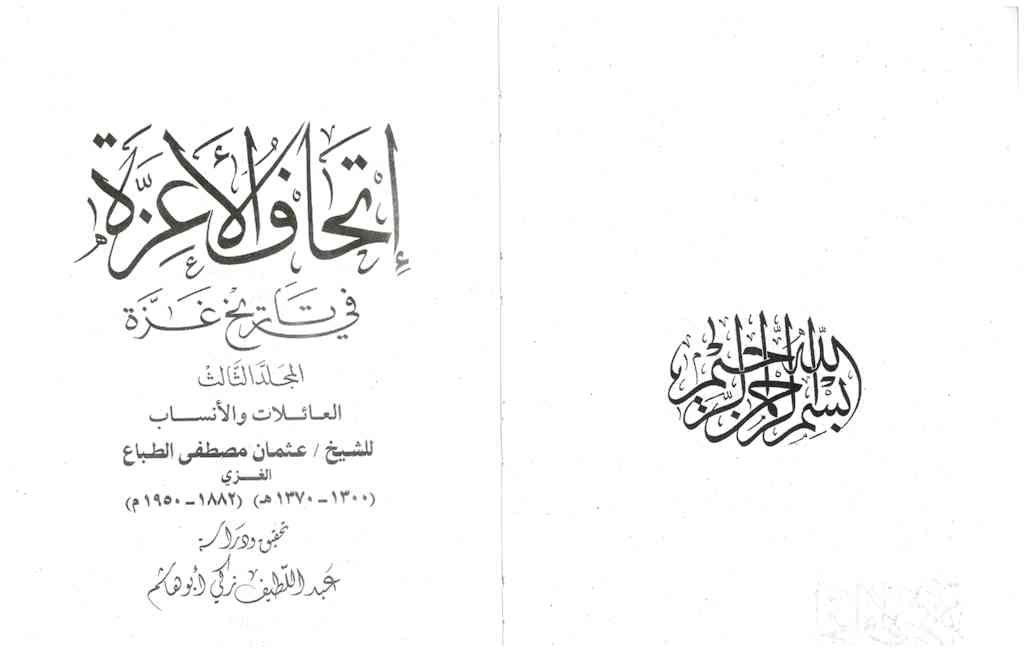 بسم الله الرحمن الرحيم
إتحاف الأعزة
في تاريخ غزة
المجلد الثالث
العائلات والأنساب
للشيخ / عثمان مصطفى الطباع
الغزي
(١٣٠٠ – ١٣٧٠ هـ) (١٨٨٢ – ١٩٥٠ م)
تحقيق ودراسة
عبد اللطيف زكي أبو هاشم